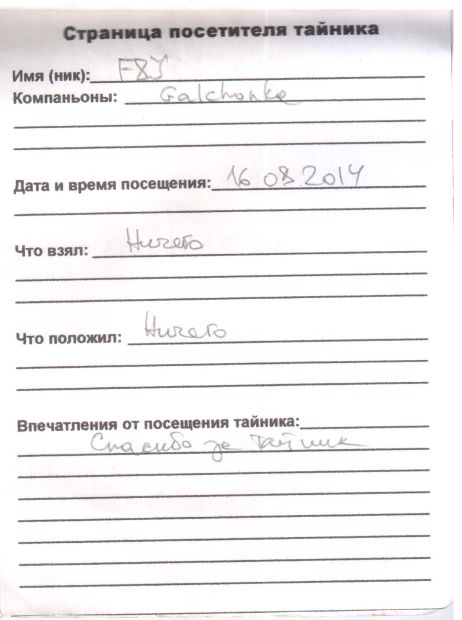 Страница посетителя тайника
Имя (ник): F8J
Компаньоны: Galchonka
Дата и время посещения: 16 08 2014
Что взял: Ничего
Что положил: Ничего
Впечатления от посещения тайника:
Спасибо за тайник